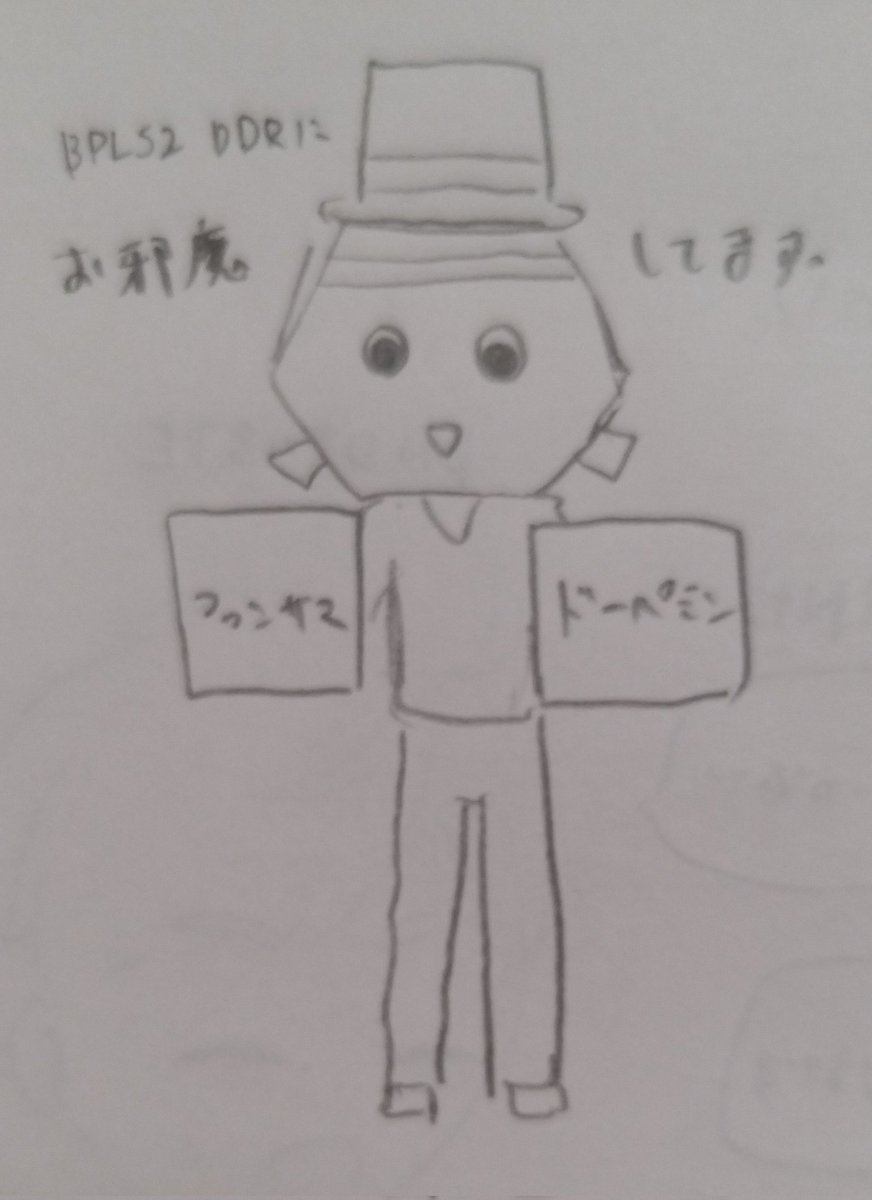 BPLS2 DDRに
お邪魔してます。
ファンサマ
ドーペミン